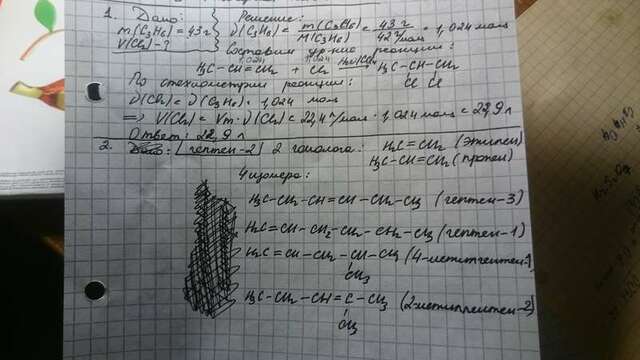 1. Дано: Решение:
m(C3H6) = 43 г ν(C3H6) = m(C3H6)/M(C3H6) = 43 г/42 г/моль = 1,024 моль
V(Cl2) - ? Составим ур-ние реакции:
1,024 1,024
H3C-CH=CH2 + Cl2 → H3C-CH-CH2
Cl Cl
По стехиометрии реакции:
ν(Cl2) = ν(C3H6) = 1,024 моль
⇒ V(Cl2) = Vm · ν(Cl2) = 22,4 л/моль · 1,024 моль = 22,9 л
Ответ: 22,9 л
2. гептен-2 2 гомолога: H2C=CH2 (этилен)
H3C-CH=CH2 (пропен)
4 изомера:
H3C-CH2-CH=CH-CH2-CH2-CH3 (гептен-3)
H2C=CH-CH2-CH2-CH2-CH3 (гептен-1)
H2C=CH-CH2-CH-CH3 (4-метилпентен-1)
CH3
H3C-CH2-CH=C-CH3 (2-метилпентен-2)
CH3